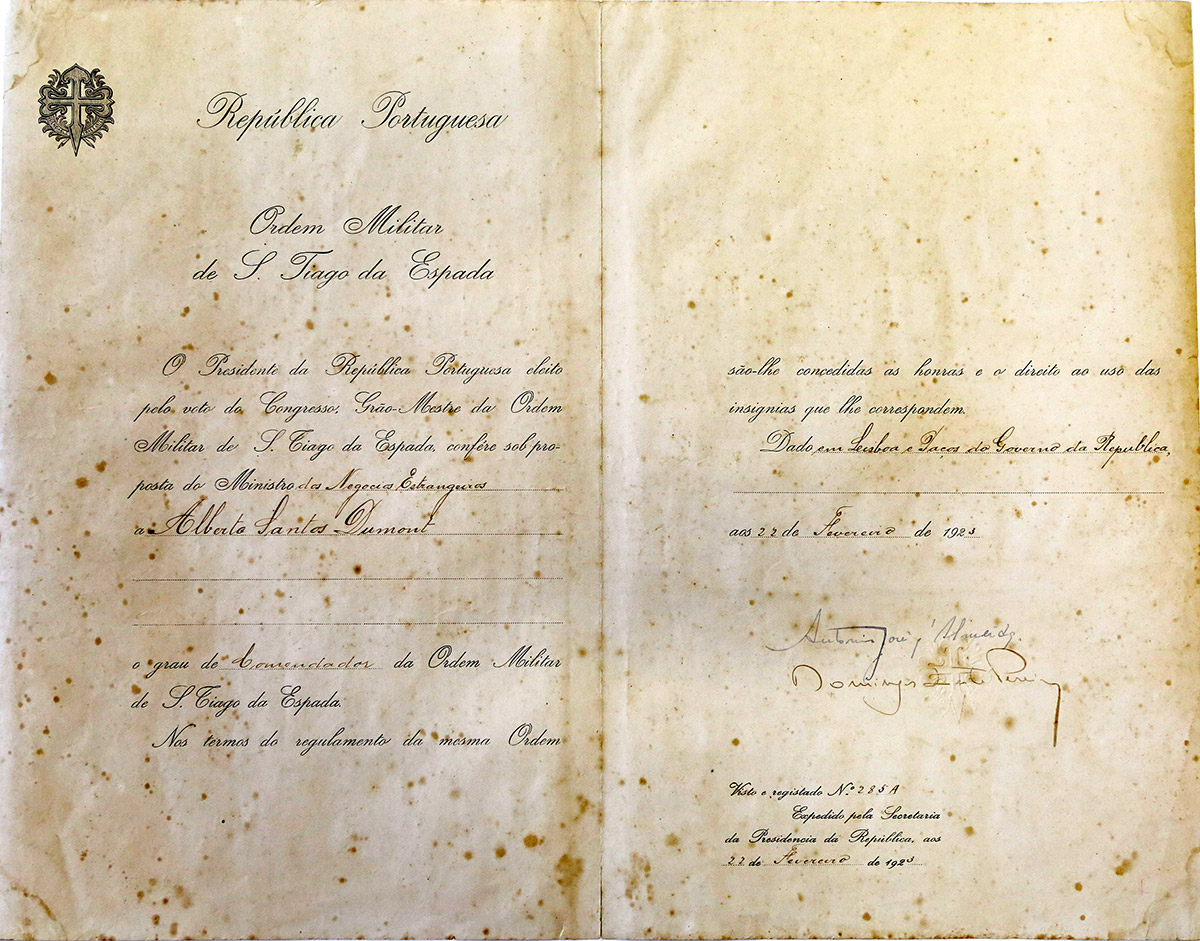 República Portuguesa
Ordem Militar
de S. Tiago da Espada
O Presidente da República Portuguesa eleito
pelo voto do Congresso, Grão-Mestre da Ordem
Militar de S. Tiago da Espada, confére sob pro-
posta do Ministro dos Negocios Estrangeiros
a Alberto Santos Dumont
o grau de Comendador da Ordem Militar
de S. Tiago da Espada.
Nos termos do regulamento da mesma Ordem
são-lhe concedidas as honras e o direito ao uso das
insignias que lhe correspondem.
Dado em Lisboa e Paços do Governo da Republica,
aos 22 de Fevereiro de 1923
Antonio José d'Almeida.
Domingos Pereira
Visto e registado N.º 285 A
Expedido pela Secretaria
da Presidencia da República, aos
22 de Fevereiro de 1923